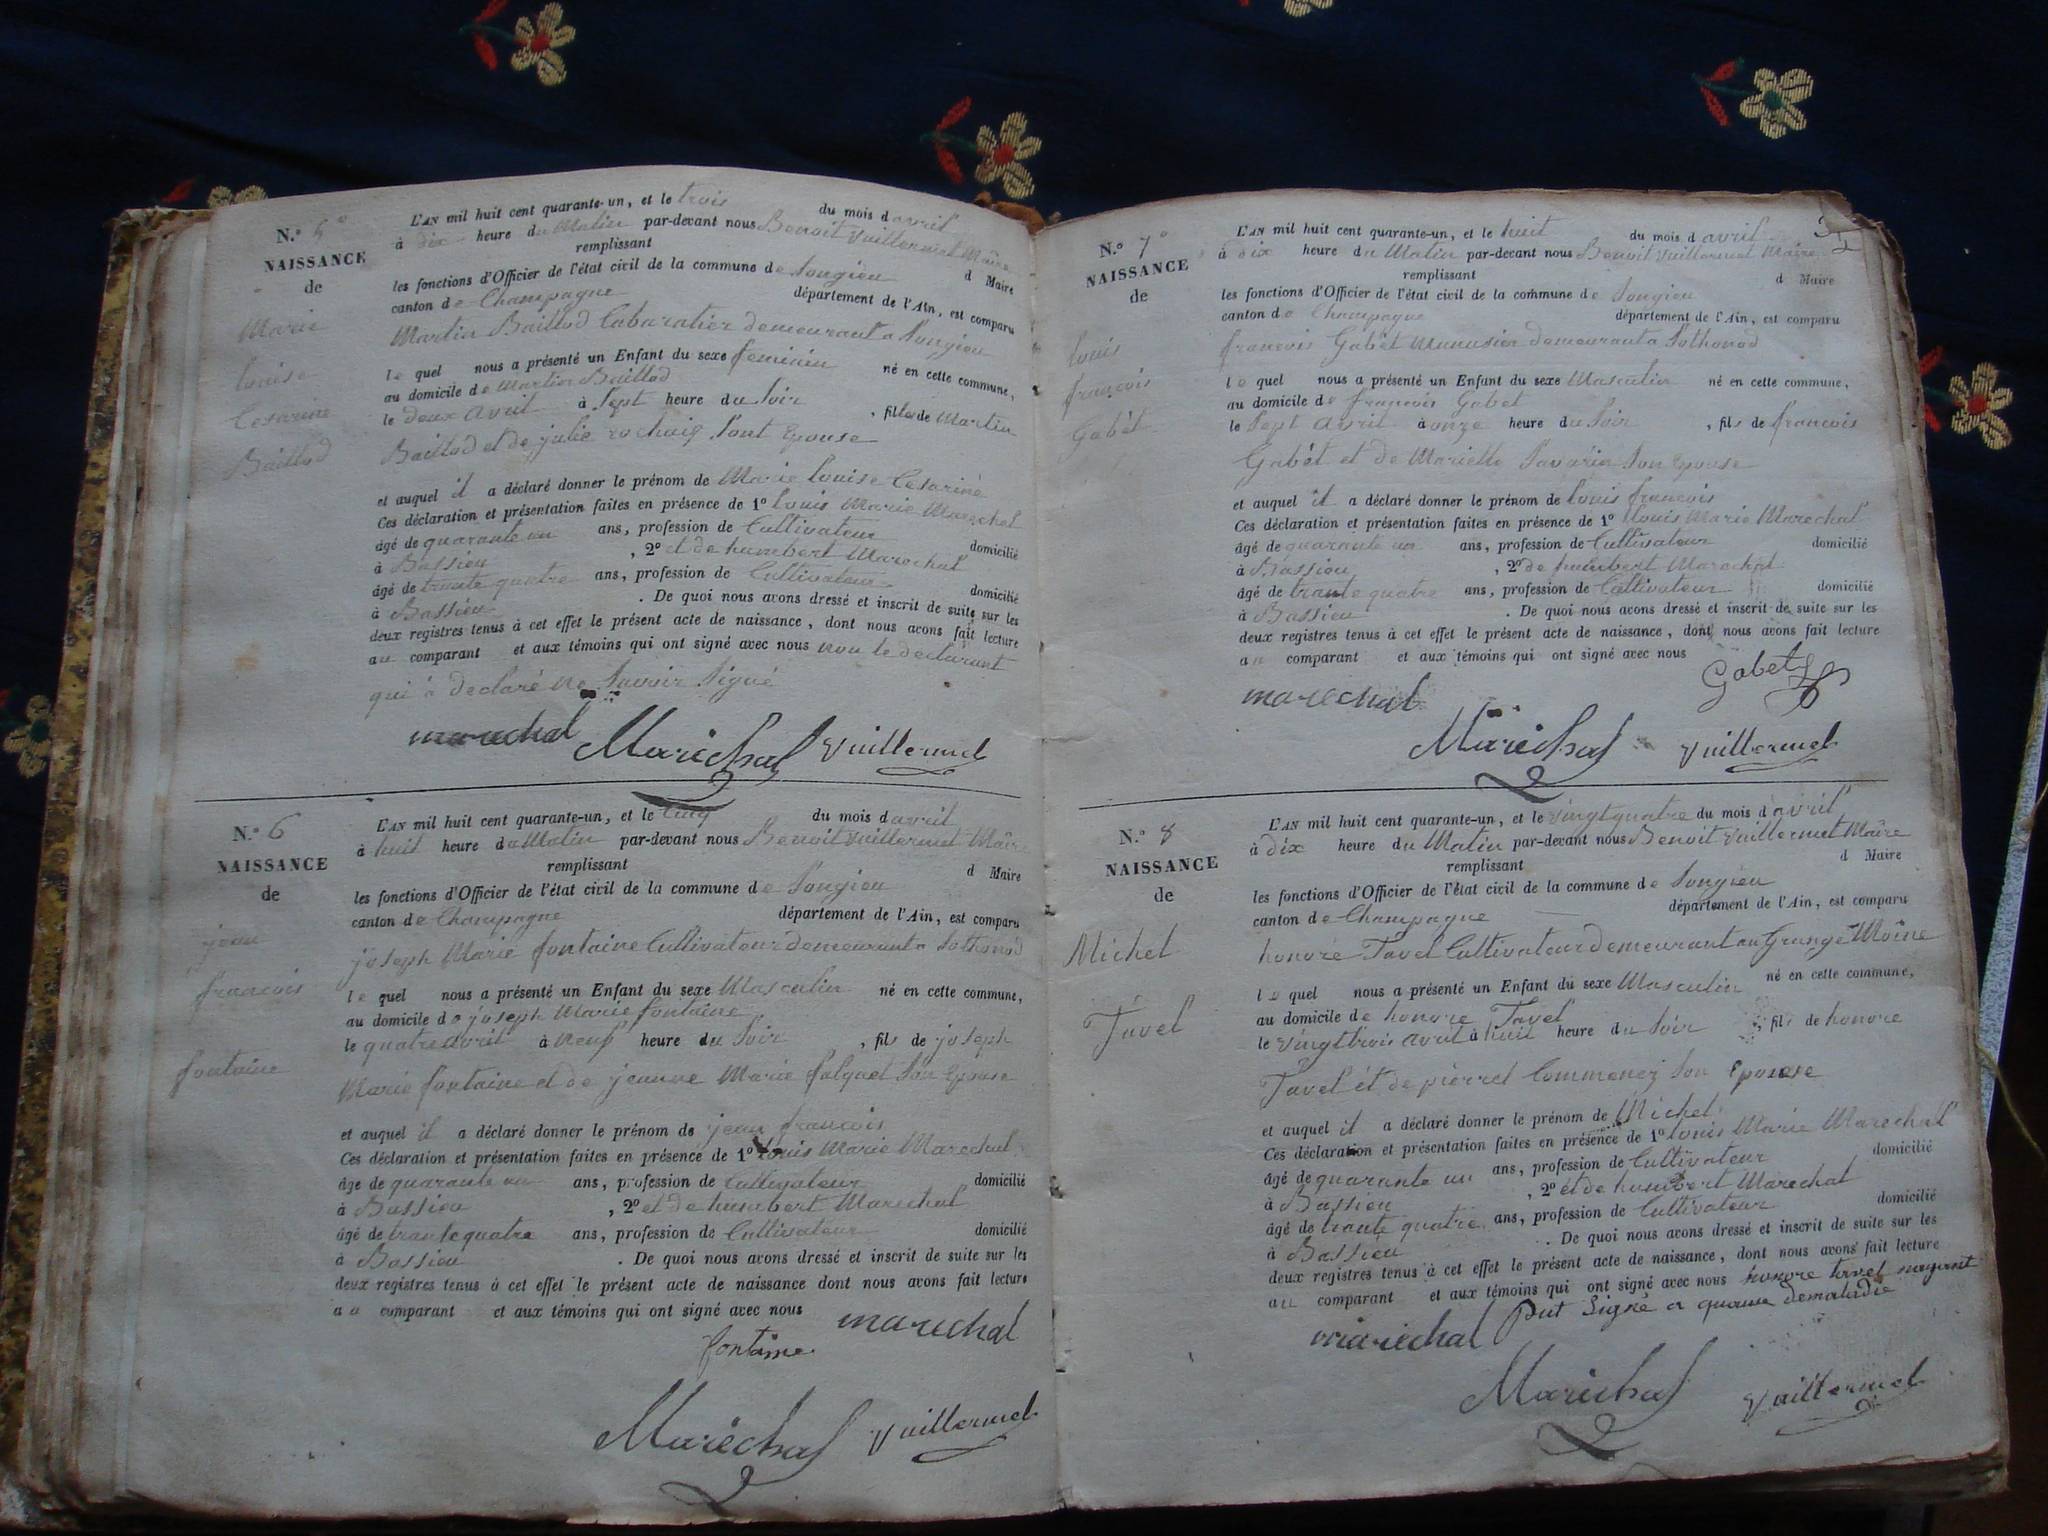 N.° 5°
NAISSANCE
de
Marie
louise
Cesarine
Baillod
L'AN mil huit cent quarante-un, et le trois du mois d avril
à dix heure du Matin par-devant nous Benoit Vuillermet Maire
remplissant d Maire
les fonctions d'Officier de l'état civil de la commune de Songieu
canton de Champagne département de l'Ain, est comparu
Martin Baillod Cabaratier demeurant a Songieu
le quel nous a présenté un Enfant du sexe feminin né en cette commune,
au domicile de Martin Baillod
le deux avril à Sept heure du Soir , fille de Martin
Baillod et de julie rochaig Sont Epouse
et auquel il a déclaré donner le prénom de Marie louise Cesarine
Ces déclaration et présentation faites en présence de 1° louis Marie Marechal
âgé de quarante un ans, profession de Cultivateur domicilié
à Bassieu , 2° et de humbert Marechal
âgé de trante quatre ans, profession de Cultivateur domicilié
à Bassieu . De quoi nous avons dressé et inscrit de suite sur les
deux registres tenus à cet effet le présent acte de naissance, dont nous avons fait lecture
au comparant et aux témoins qui ont signé avec nous non le declarant
qui à declaré ne Savoir Signé
marechal Maréchal Vuillermet
N.° 6
NAISSANCE
de
jean
francois
fontaine
L'AN mil huit cent quarante-un, et le Cinq du mois d avril
à huit heure du Matin par-devant nous Benoit Vuillermet Maire
remplissant d Maire
les fonctions d'Officier de l'état civil de la commune de Songieu
canton de Champagne département de l'Ain, est comparu
joseph Marie fontaine Cultivateur demeurant a Sothonod
le quel nous a présenté un Enfant du sexe Masculin né en cette commune,
au domicile de joseph Marie fontaine
le quatre avril à neuf heure du Soir , fils de joseph
Marie fontaine et de jeanne Marie falquet Son Epouse
et auquel il a déclaré donner le prénom de jean francois
Ces déclaration et présentation faites en présence de 1° louis Marie Marechal
âge de quarante un ans, profession de Cultivateur domicilié
à Bassieu , 2° et de humbert Marechal
âgé de trante quatre ans, profession de Cultivateur domicilié
à Bassieu . De quoi nous avons dressé et inscrit de suite sur les
deux registres tenus à cet effet le présent acte de naissance dont nous avons fait lecture
au comparant et aux témoins qui ont signé avec nous marechal
fontaine
Maréchal Vuillermet
N.° 7°
NAISSANCE
de
louis
françois
Gabet
L'AN mil huit cent quarante-un, et le huit du mois d avril
à dix heure du Matin par-devant nous Benoit Vuillermet Maire
remplissant d Maire
les fonctions d'Officier de l'état civil de la commune de Songieu
canton de Champagne département de l'Ain, est comparu
francois Gabet Munusier demeurant a Sothonod
le quel nous a présenté un Enfant du sexe Masculin né en cette commune,
au domicile de francois Gabet
le Sept avril à onze heure du Soir , fils de francois
Gabet et de Mariette Savarin Son Epouse
et auquel il a déclaré donner le prénom de louis francois
Ces déclaration et présentation faites en présence de 1° louis Marie Marechal
âgé de quarante un ans, profession de Cultivateur domicilié
à Bassieu , 2° de humbert Marechal
âgé de trante quatre ans, profession de Cultivateur domicilié
à Bassieu . De quoi nous avons dressé et inscrit de suite sur les
deux registres tenus à cet effet le présent acte de naissance, dont nous avons fait lecture
au comparant et aux témoins qui ont signé avec nous
marechal Gabet
Maréchal Vuillermet
N.° 8
NAISSANCE
de
Michel
Tavel
L'AN mil huit cent quarante-un, et le vingt quatre du mois d avril
à dix heure du Matin par-devant nous Benoit Vuillermet Maire
remplissant d Maire
les fonctions d'Officier de l'état civil de la commune de Songieu
canton de Champagne département de l'Ain, est comparu
honoré Tavel Cultivateur demeurant au Grange Moine
le quel nous a présenté un Enfant du sexe Masculin né en cette commune,
au domicile de honore Tavel
le vingt trois avril à huit heure du Soir , fils de honore
Tavel et de pierret Commenez Son Epouse
et auquel il a déclaré donner le prénom de Michel
Ces déclaration et présentation faites en présence de 1° louis Marie Marechal
âgé de quarante un ans, profession de Cultivateur domicilié
à Bassieu , 2° et de humbert Marechal
âgé de trante quatre ans, profession de Cultivateur domicilié
à Bassieu . De quoi nous avons dressé et inscrit de suite sur les
deux registres tenus à cet effet le présent acte de naissance, dont nous avons fait lecture
au comparant et aux témoins qui ont signé avec nous honore tavel nayant
put Signé a quause de maladie
marechal
Maréchal Vuillermet